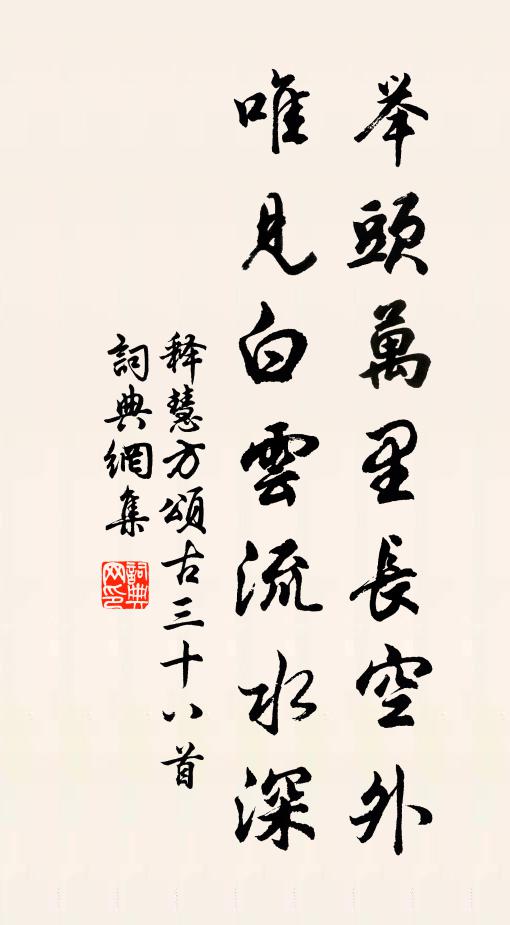 举頭萬里長空外
唯見白雲流水深
释慧方頌古三十八首
詞典網集
詞典
网印